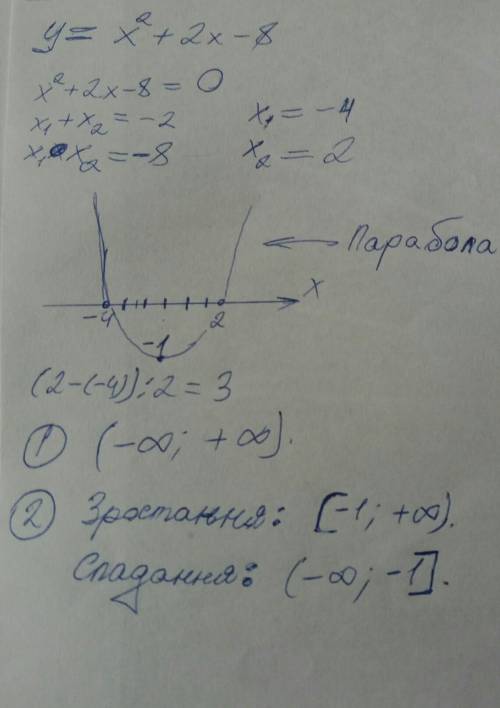 y = x² + 2x - 8
x² + 2x - 8 = 0
x₁ + x₂ = -2 x₁ = -4
x₁ • x₂ = -8 x₂ = 2
Парабола
x
-4 2
-1
(2-(-4)):2 = 3
1 (-∞; +∞).
2 Зростання: [-1; +∞).
Спадання: (-∞; -1].